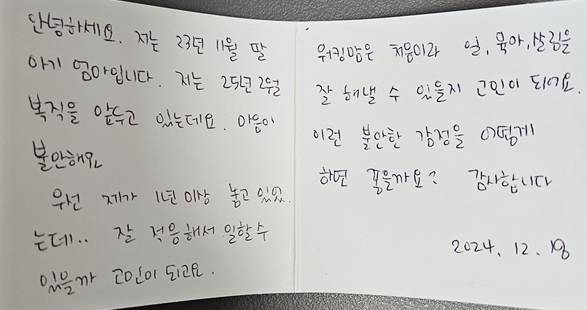 안녕하세요. 저는 23년 11월 딸
아기 엄마입니다. 저는 25년 2월
복직을 앞두고 있는데요. 마음이
불안해요
우선 제가 1년 이상 놀고 있었
는데.. 잘 적응해서 일할 수
있을까 고민이 되고요.
워킹맘은 처음이라 일, 육아, 살림을
잘 해낼 수 있을지 고민이 되어요.
이런 불안한 감정을 어떻게
하면 좋을까요? 감사합니다
2024. 12. 18